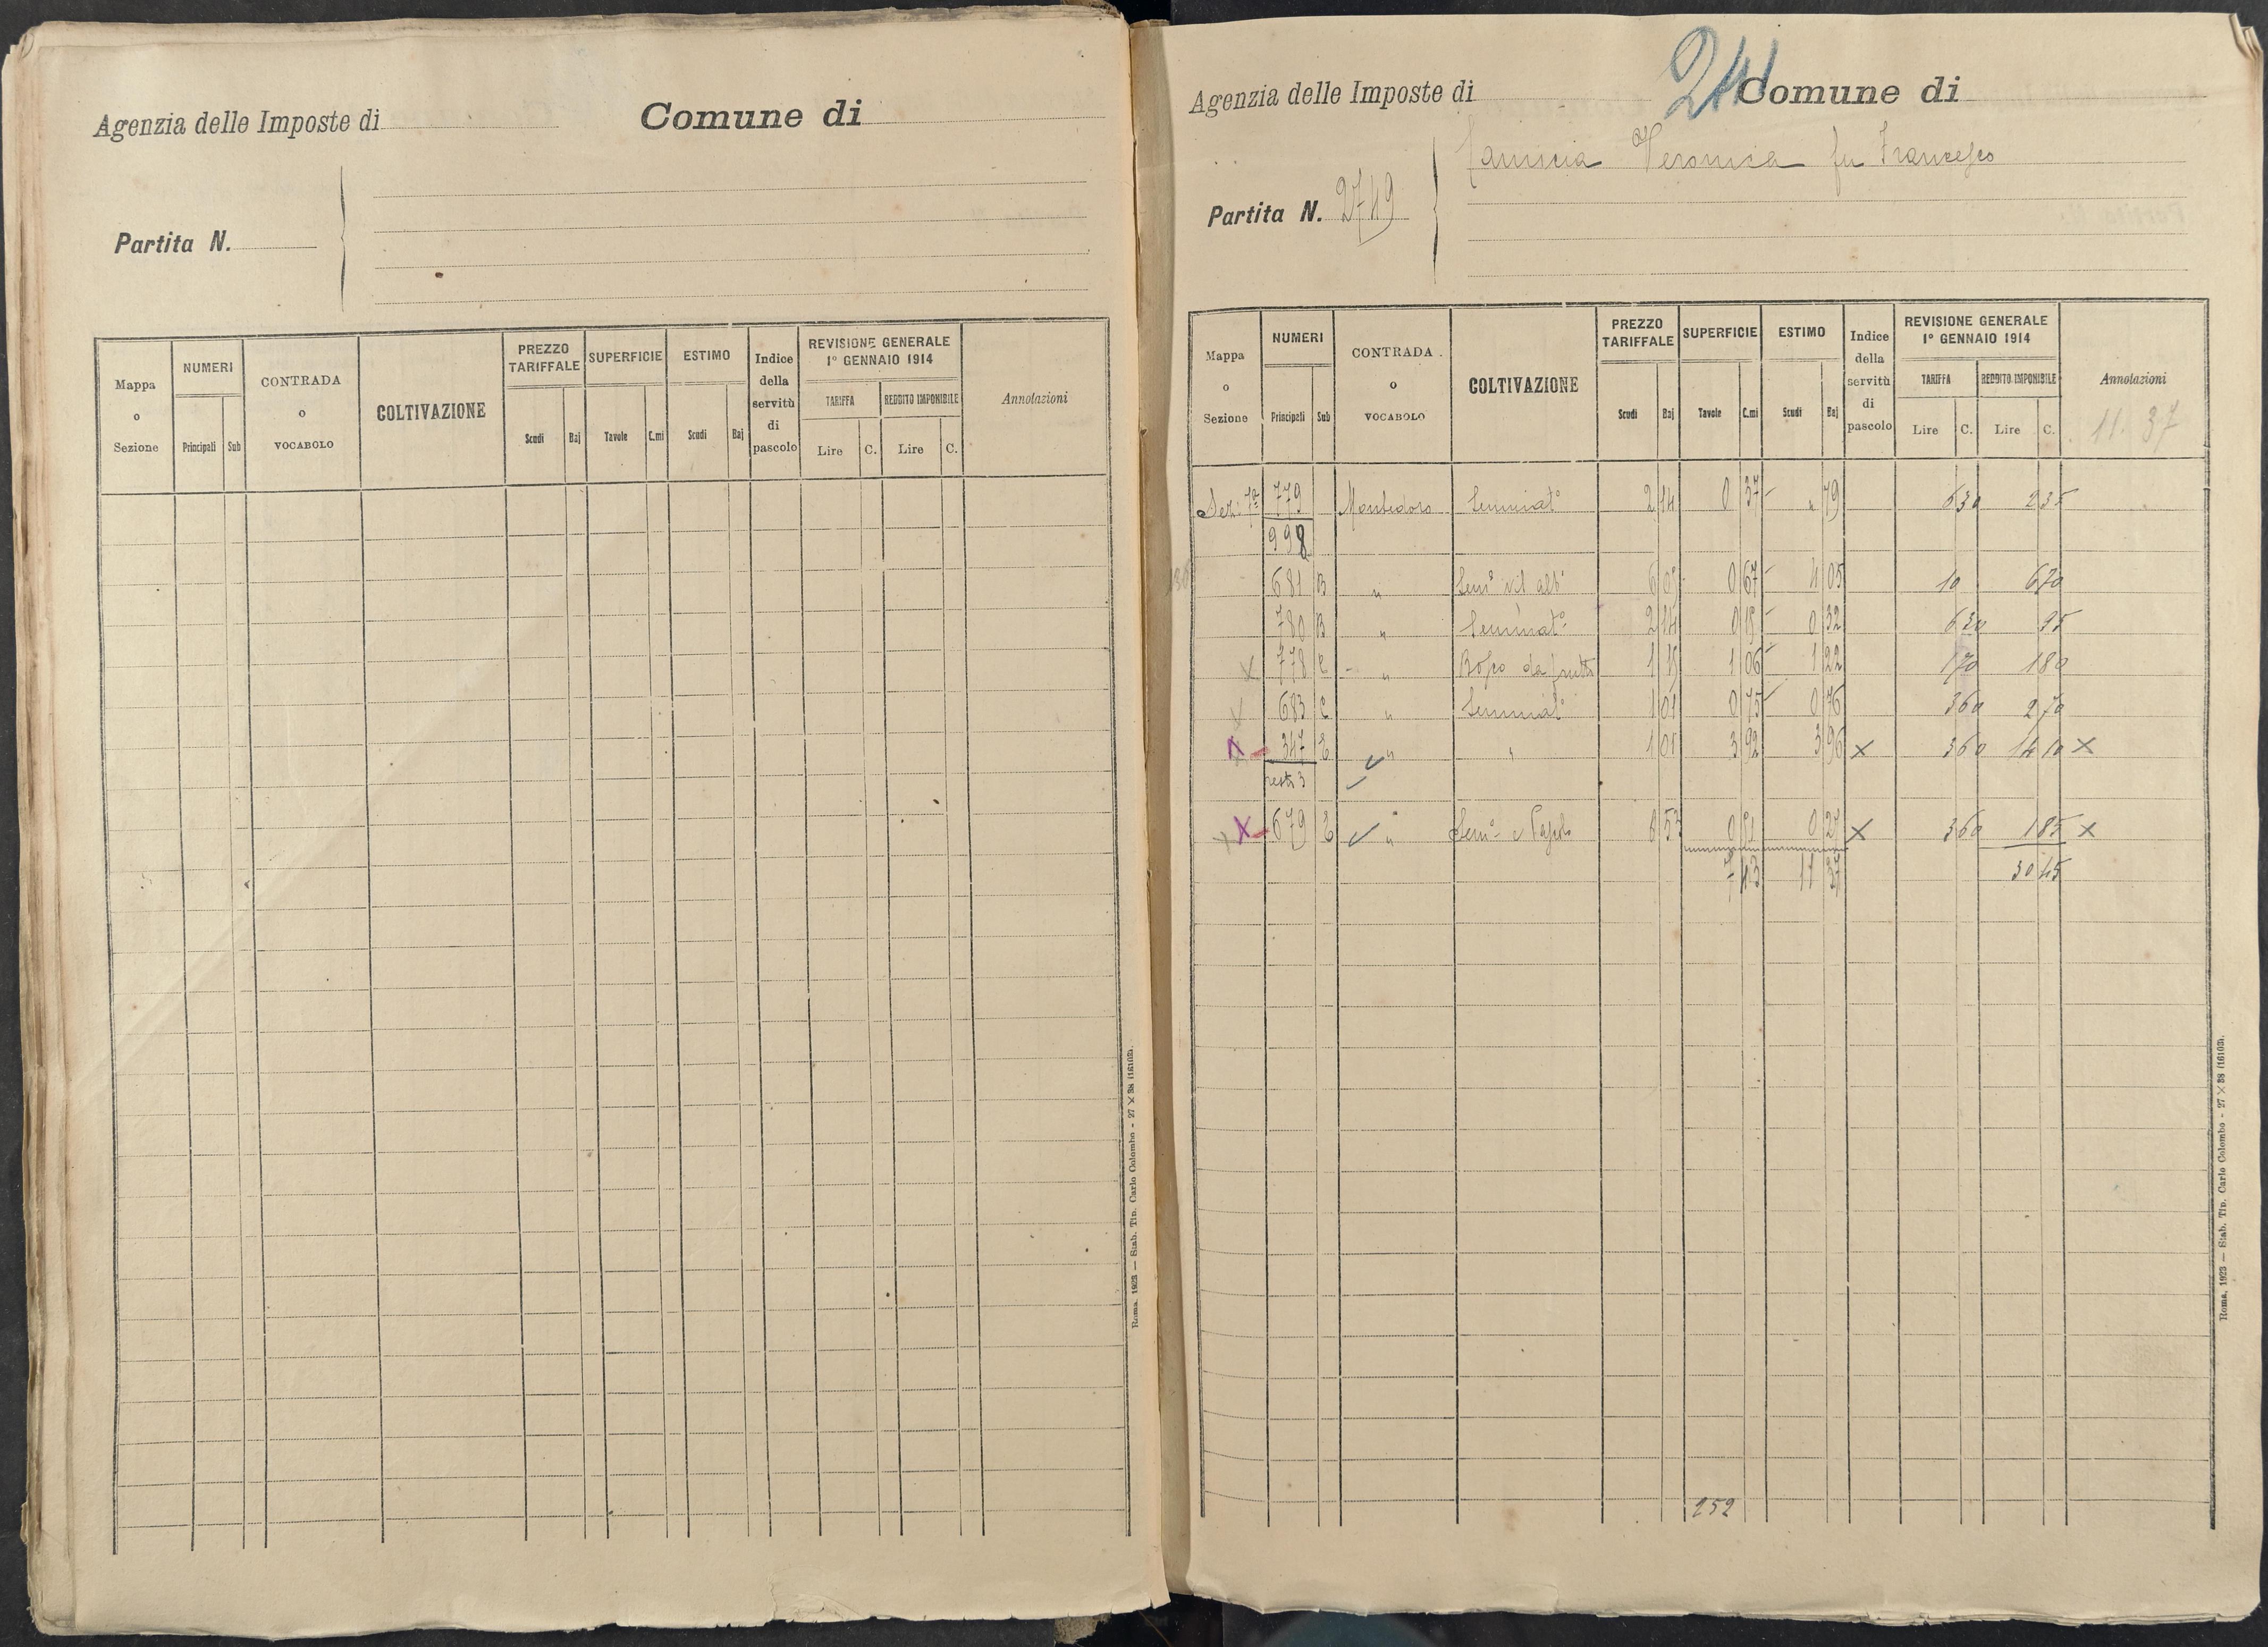 Agenzia delle Imposte di
Comune di
Partita N.
Mappa o Sezione
NUMERI
Principali
Sub
CONTRADA o VOCABOLO
COLTIVAZIONE
PREZZO TARIFFALE
Scudi
Baj
SUPERFICIE
Tavole
C.mi
ESTIMO
Scudi
Baj
Indice della servitù di pascolo
REVISIONE GENERALE
1º GENNAIO 1914
TARIFFA
REDDITO IMPONIBILE
Lire
C.
Lire
C.
Annotazioni
Roma, 1923 — Stab. Tip. Carlo Colombo - 27 × 38 (16102).
241
Agenzia delle Imposte di
Comune di
Veronica fu Francesco
Partita N. 2749
Mappa o Sezione
NUMERI
Principali
Sub
CONTRADA o VOCABOLO
COLTIVAZIONE
PREZZO TARIFFALE
Scudi
Baj
SUPERFICIE
Tavole
C.mi
ESTIMO
Scudi
Baj
Indice della servitù di pascolo
REVISIONE GENERALE
1º GENNAIO 1914
TARIFFA
REDDITO IMPONIBILE
Lire
C.
Lire
C.
Annotazioni
11. 37
Sez. 1ª 779 Montedoro Seminatº 2 14 0 37 " 79 630 235
998
681 B " Semº vit albº 6 05 0 67 4 05 10 670
780 B " Seminatº 2 14 0 15 0 32 630 95
X 778 C " Bosco da frutto 1 15 1 06 1 22 170 180
X 683 C " Seminatº 1 01 0 75 0 76 360 270
X 347 E " " 1 01 3 92 3 96 X 360 1410 X
resta 3
X X 679 E " Semº e Pascolo 0 53 0 51 0 27 X 360 185 X
7 43 11 37 3045
252
Roma, 1923 — Stab. Tip. Carlo Colombo - 27 × 38 (16102).